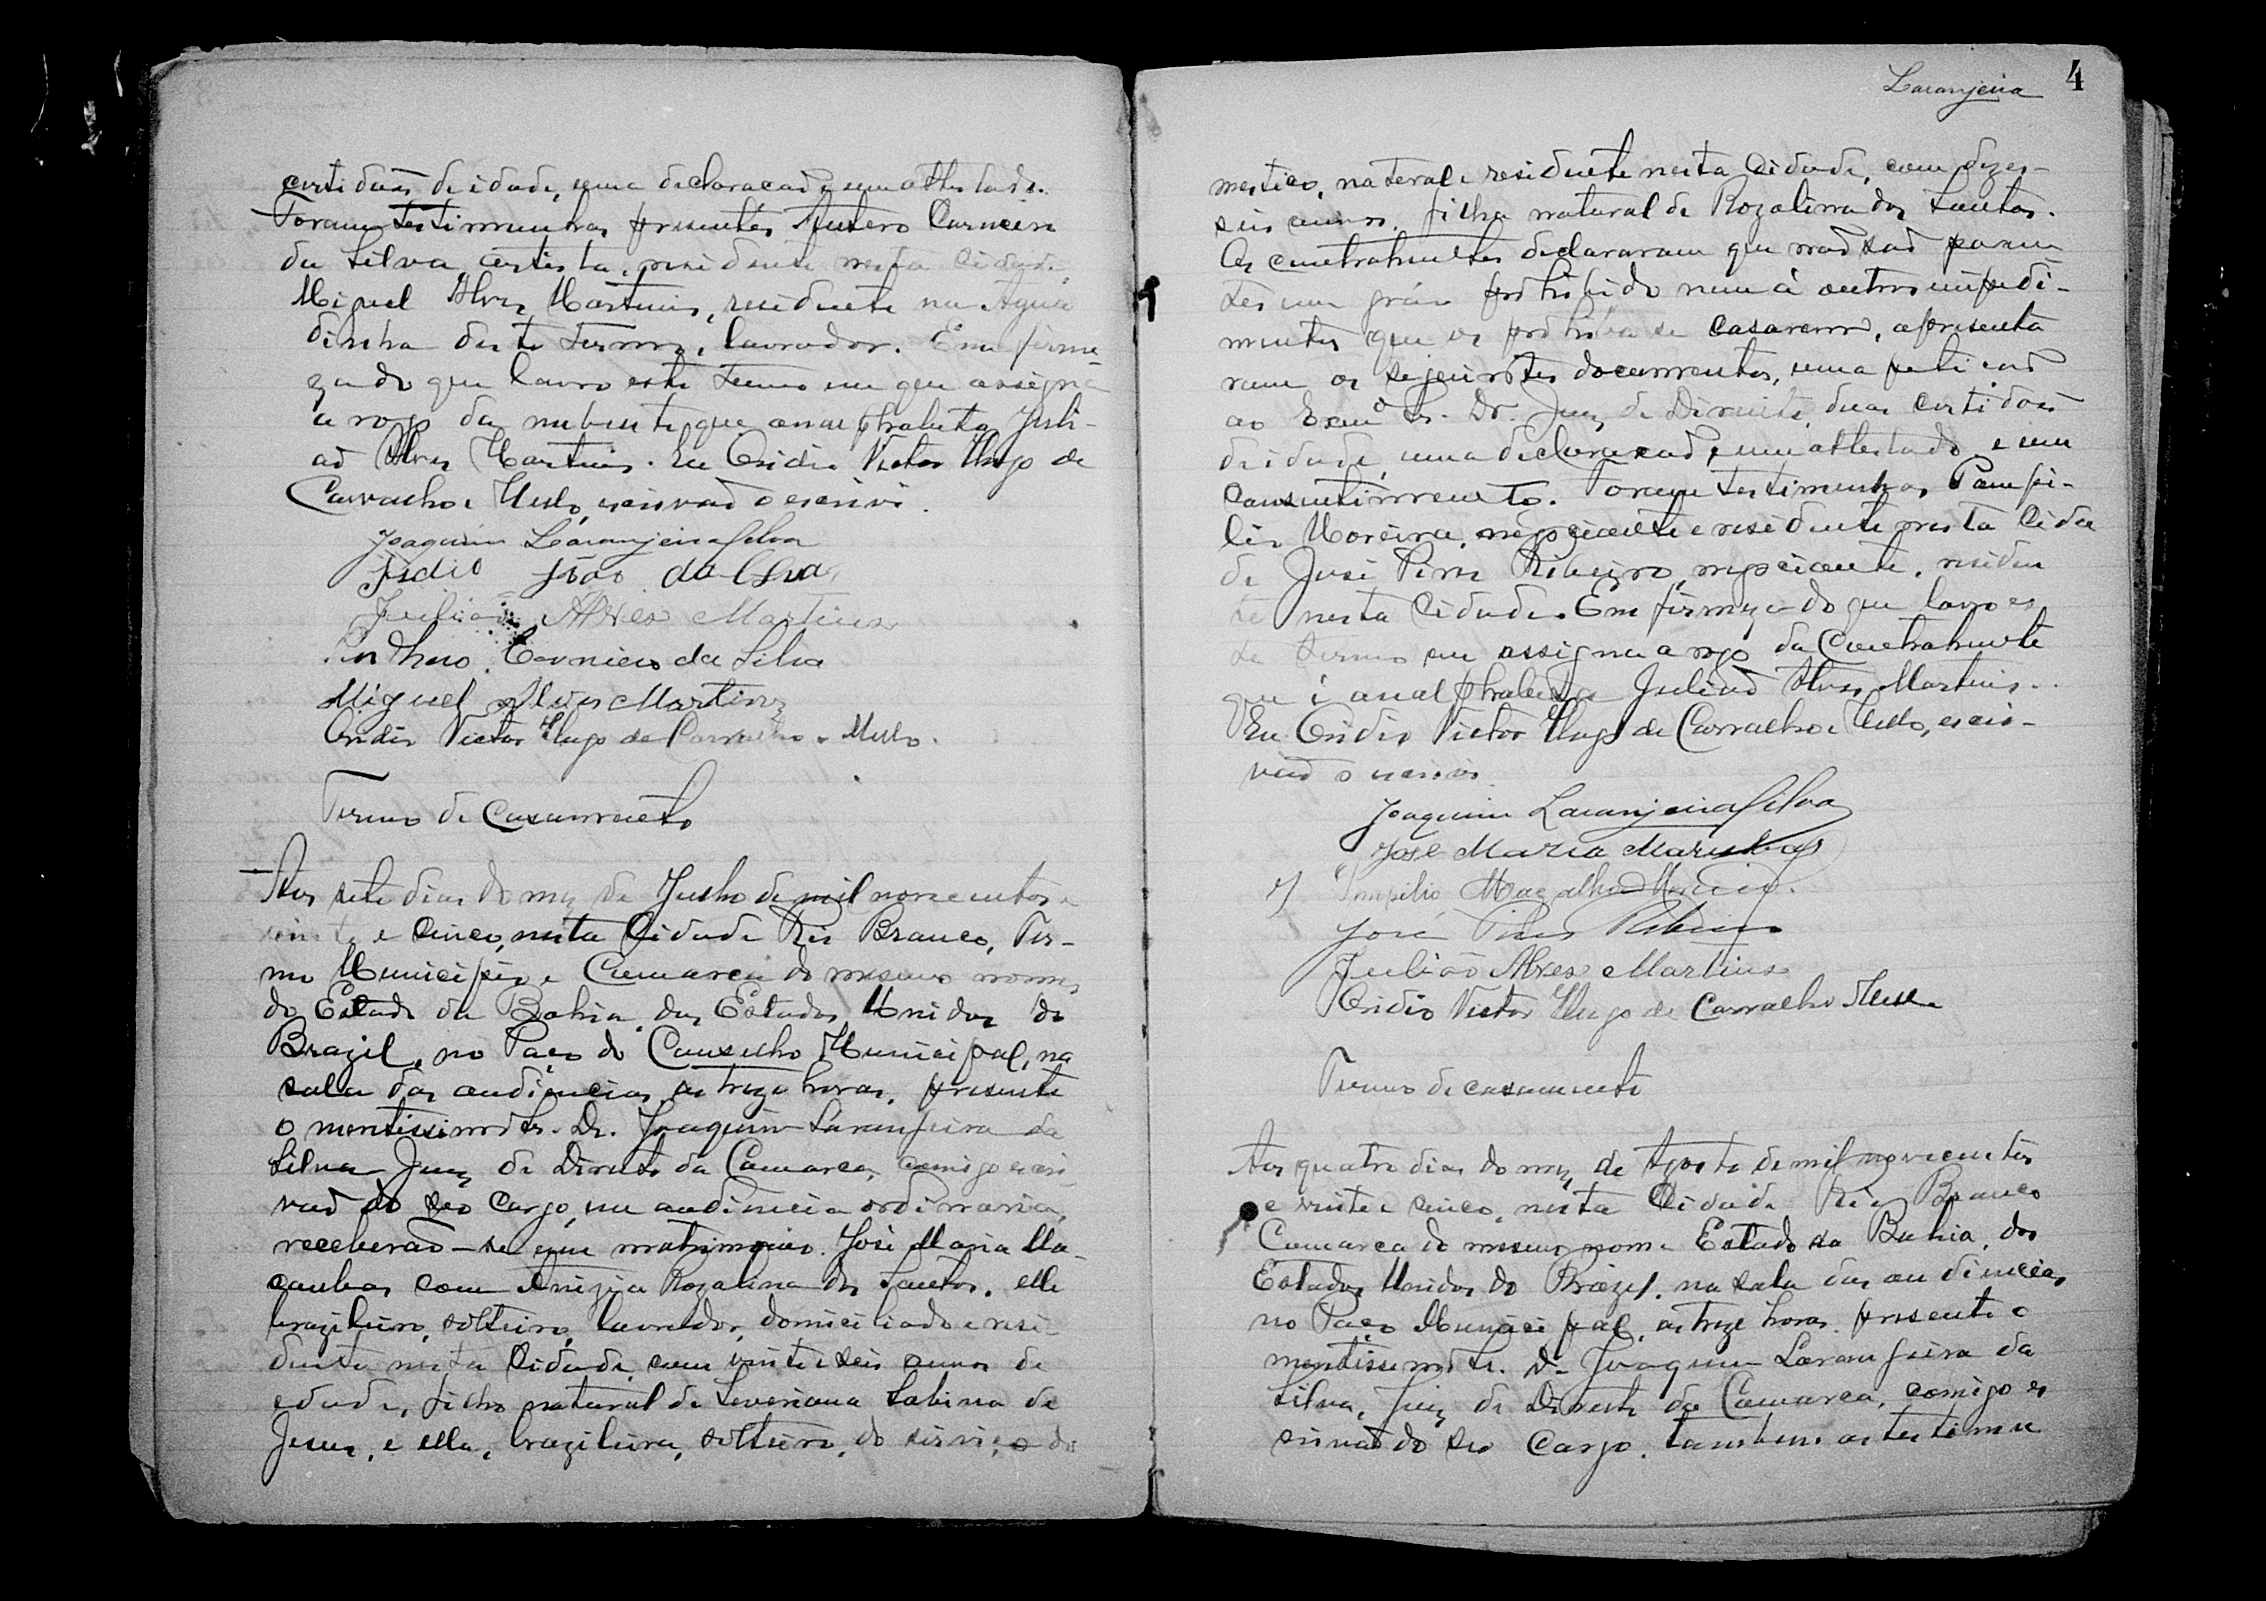 certidões de idade, uma declaração e um attestado.
Foram testimunhas presentes Antero Carneiro
da Silva, artista, residente nesta Cidade,
Miguel Alves Martins, residente na Agua
dinha deste termo, lavrador. E em firme
za do que lavro este termo em que assigna
a rogo da nubente que é analphabeta, Juli-
aõ Alves Martins. Eu Ovidio Victor Hugo de
Carvalho e Mello, escrivaõ o escrivi.
Joaquim Laranjeira Silva
João da Silva
Julião Alves Martins
Anthero Carneiro da Silva
Miguel Alves Martins
Ovidio Victor Hugo de Carvalho e Mello.
Termo de Casamento
Aos sete dias do mez de Julho de mil novecentos e
vinte e cinco, nesta Cidade Rio Branco, Ter-
mo Municipio e Comarca do mesmo nome,
do Estado da Bahia, dos Estados Unidos do
Brazil, no Paço do Conselho Municipal, na
sala das audiencias, as treze horas, presente
o meritissimo Sr. Dr. Joaquim Laranjeira da
Silva Juiz de Direito da Comarca, comigo escri
vaõ do seo cargo, em audiencia ordinaria,
receberaõ-se em matrimonio. José Maria Ma-
com Rozalina dos Santos, elle
brazileiro, solteiro, lavrador, domiciliado e resi-
dente nesta Cidade, com vinte e seis annos de
edade, filho natural de Severiana Sabina de
Jesus, e ella, brazileira, solteira, do serviço do
Laranjeira 4
mestico, natural e residente nesta Cidade, com dezes-
seis annos, filha natural de Rozalina dos Santos.
Os contrahentes declararam que naõ saõ paren
tes em gráo prohibido nem á outros impedi-
mentos que os prohiba de casarem, apresenta
ram os seguintes documentos, uma petiçaõ
ao Exmo Sr. Dr. Juiz de Direito, duas certidões
de idade, uma declaraçaõ, e um attestado e um
consentimento. Foram testimunhas Pompi-
lio Moreira, negociante e residente nesta Cida
de José Pires Ribeiro, negociante, residen
te nesta Cidade. Em firmeza do que lavro es
te termo em assigna a rogo da Contrahente
que é analphabeta Juliaõ Alves Martins.
Eu Ovidio Victor Hugo de Carvalho e Mello, escri-
vaõ o escrivi
Joaquim Laranjeira Silva
José Maria
Pompilio Magalhães Moreira.
José Pires Ribeiro
Julião Alves Martins
Ovidio Victor Hugo de Carvalho Mello
Termo de casamento
Aos quatro dias do mez de Agosto de mil novecentos
e vinte e cinco, nesta Cidade Rio Branco
Comarca do mesmo nome Estado da Bahia, dos
Estados Unidos do Brazil, na sala das audiencias,
no Paço Municipal, as treze horas presente o
meritissimo Sr. Dr Joaquim Laranjeira da
Silva, Juiz de Direito da Comarca, comigo es
crivaõ do seo Cargo, tambem as testimu